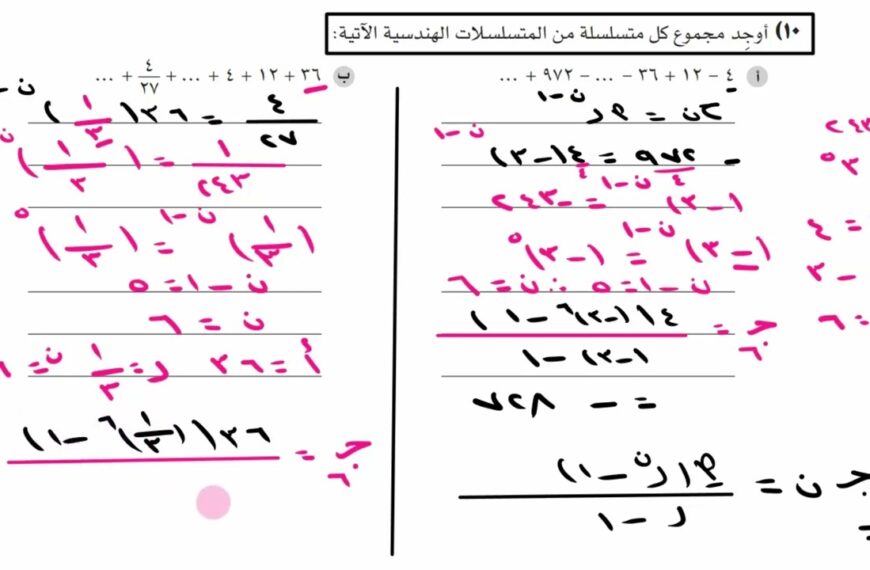 ١٠) أوجِد مجموع كل متسلسلة من المتسلسلات الهندسية الآتية:
أ ٤ − ١٢ + ٣٦ − ... − ٩٧٢ + ...
ح ن = م ر ن−١
− ٩٧٢ = ٤(−٣) ن−١
٤ ٤
(−٣) ن−١ = −٢٤٣
(−٣) ن−١ = (−٣)٥
ن − ١ = ٥ ∴ ن = ٦
جـ٦ = ٤((−٣)٦ − ١) / (−٣) − ١
= − ٧٢٨
جـ ن = م(رن − ١) / ر − ١
ب ٣٦ + ١٢ + ٤ + ... + ٤/٢٧ + ...
٤/٢٧ = ٣٦(١/٣) ن−
١/٢٤٣ = (١/٣) ن−١
(١/٣) ن−١ = (١/٣)٥
ن − ١ = ٥
ن = ٦
أ = ٣٦ ر = ١/٣ ن =
جـ٦ = ٣٦((١/٣)٦ − ١)
٢٤٣
٣٥
= ٤
− ٣
= ٦